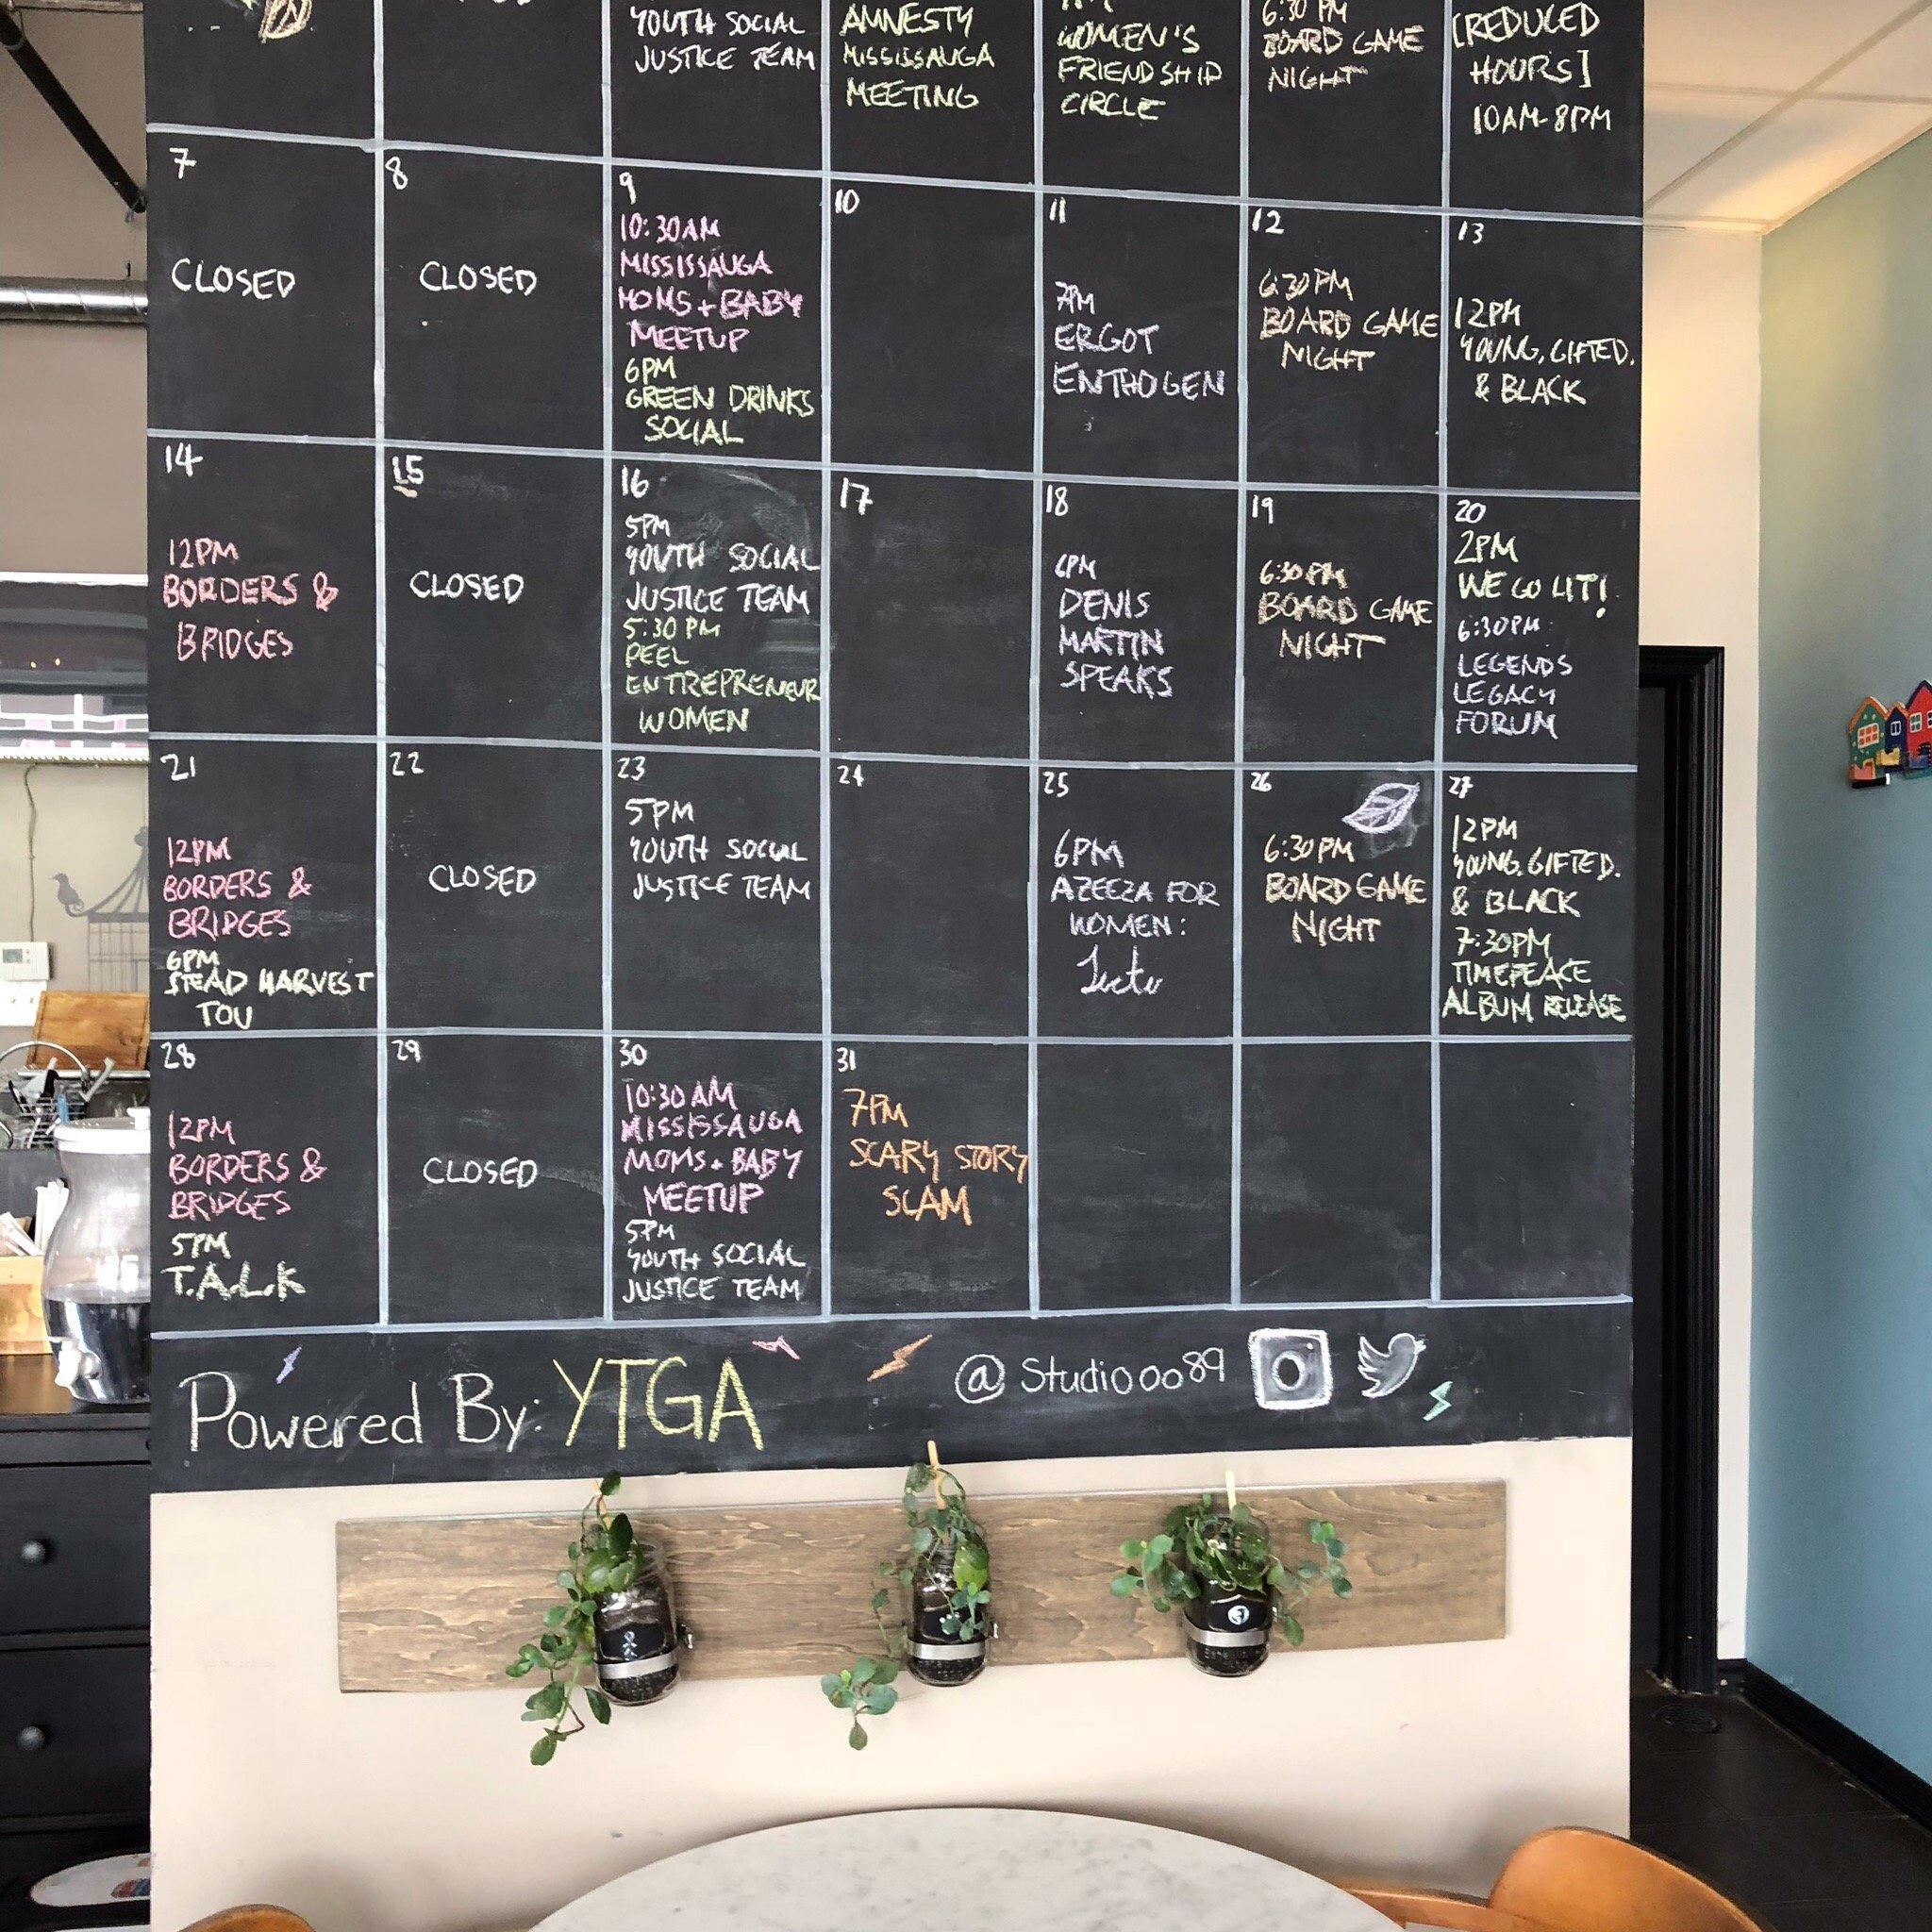 YOUTH SOCIAL
JUSTICE TEAM
AMNESTY
MISSISSAUGA
MEETING
WOMEN'S
FRIENDSHIP
CIRCLE
6:30 PM
BOARD GAME
NIGHT
[REDUCED
HOURS]
10AM-8PM
7
CLOSED
8
CLOSED
9
10:30AM
MISSISSAUGA
MOMS + BABY
MEETUP
6PM
GREEN DRINKS
SOCIAL
10
11
7PM
ERGOT
ENTHOGEN
12
6:30PM
BOARD GAME
NIGHT
13
12PM
YOUNG, GIFTED,
& BLACK
14
12PM
BORDERS &
BRIDGES
15
CLOSED
16
5PM
YOUTH SOCIAL
JUSTICE TEAM
5:30 PM
PEEL
ENTREPRENEUR
WOMEN
17
18
6PM
DENIS
MARTIN
SPEAKS
19
6:30PM
BOARD GAME
NIGHT
20
2PM
WE GO LIT!
6:30PM
LEGENDS
LEGACY
FORUM
21
12PM
BORDERS &
BRIDGES
6PM
STEAD HARVEST
TOU
22
CLOSED
23
5PM
YOUTH SOCIAL
JUSTICE TEAM
24
25
6PM
AZEEZA FOR
WOMEN:
26
6:30PM
BOARD GAME
NIGHT
27
12PM
YOUNG, GIFTED,
& BLACK
7:30PM
TIMEPEACE
ALBUM RELEASE
28
12PM
BORDERS &
BRIDGES
5PM
T.A.L.K
29
CLOSED
30
10:30 AM
MISSISSAUGA
MOMS + BABY
MEETUP
5PM
YOUTH SOCIAL
JUSTICE TEAM
31
7PM
SCARY STORY
SLAM
Powered By: YTGA
@Studioo89